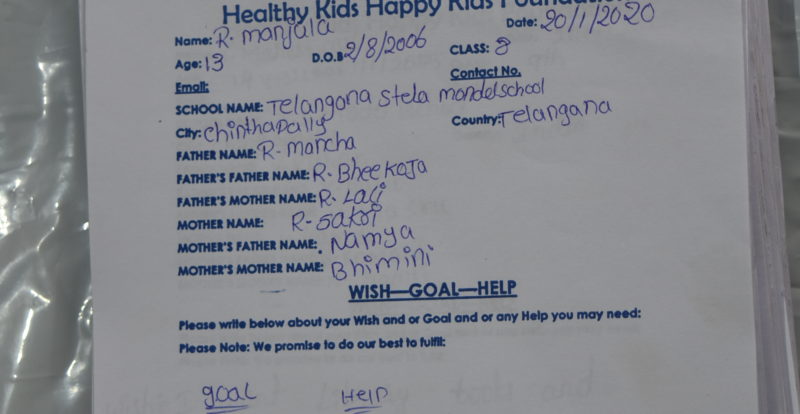 Healthy Kids Happy Kids Foundation
Name: R. manjala Date: 20/1/2020
Age: 13 D.O.B 2/8/2006 CLASS: 8
Email: Contact No.
SCHOOL NAME: Telangana stela mondelschool
City: chinthapally Country: Telangana
FATHER NAME: R. mancha
FATHER'S FATHER NAME: R. Bheekoja
FATHER'S MOTHER NAME: R. Lali
MOTHER NAME: R- sakri
MOTHER'S FATHER NAME: Namya
MOTHER'S MOTHER NAME: Bhimini
WISH—GOAL—HELP
Please write below about your Wish and or Goal and or any Help you may need:
Please Note: We promise to do our best to fulfil:
goal Help